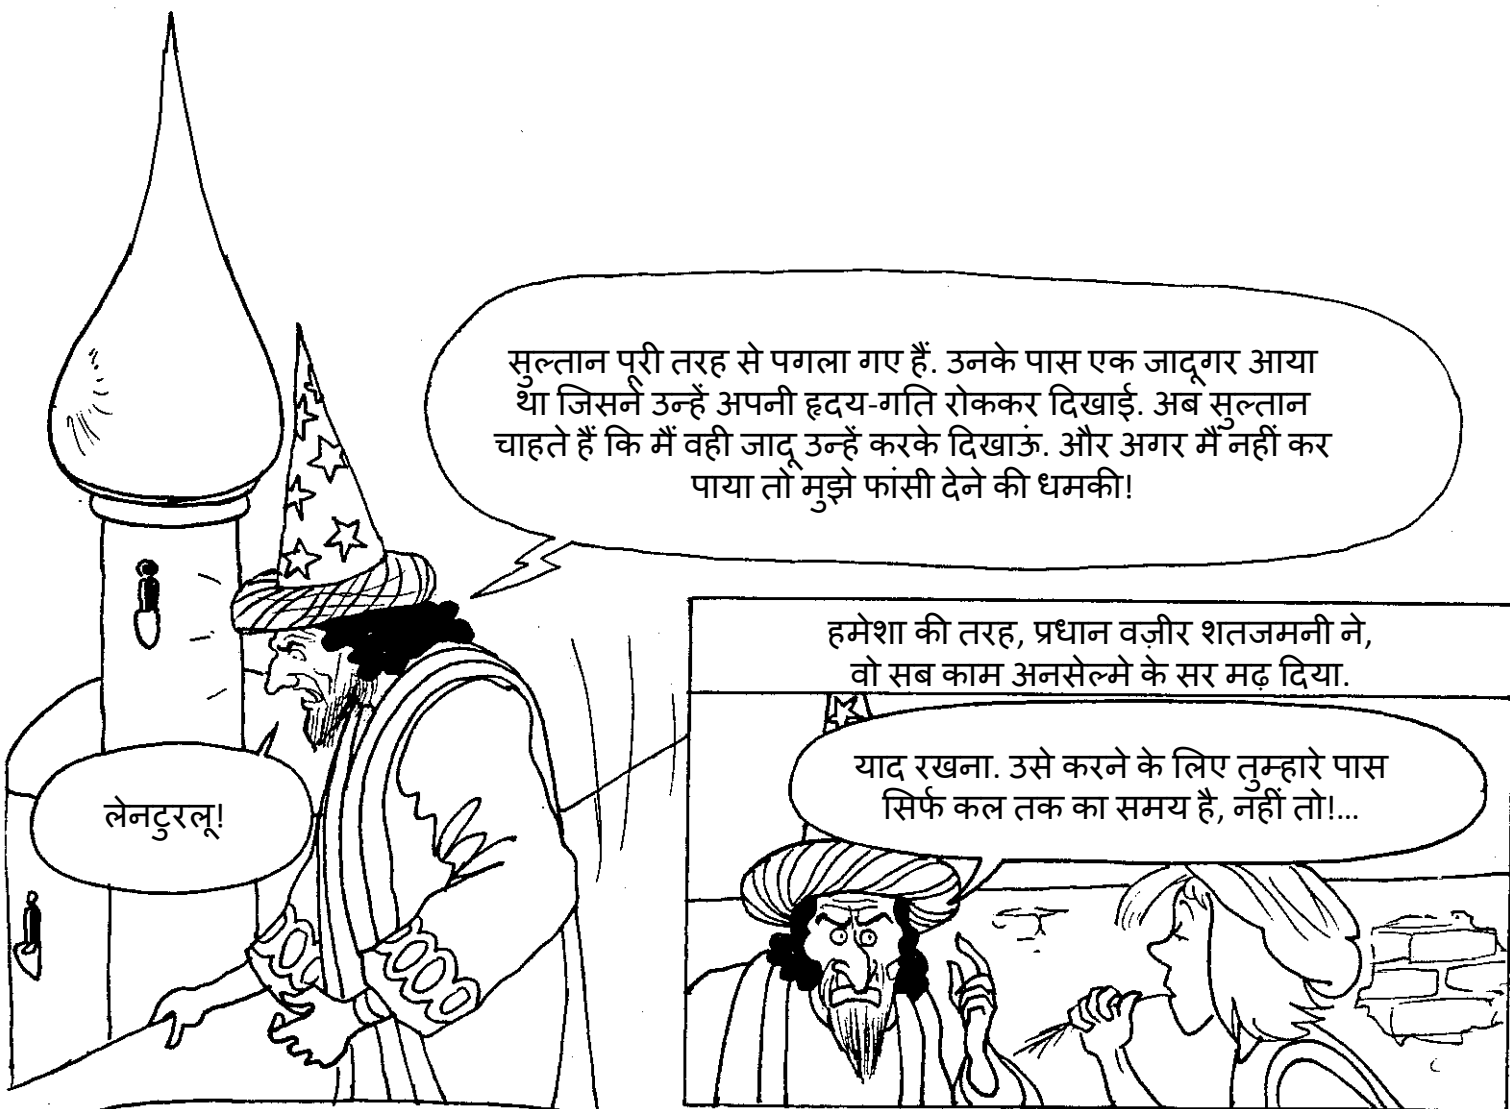 सुल्तान पूरी तरह से पगला गए हैं. उनके पास एक जादूगर आया
था जिसने उन्हें अपनी हृदय-गति रोककर दिखाई. अब सुल्तान
चाहते हैं कि मैं वही जादू उन्हें करके दिखाऊं. और अगर मैं नहीं कर
पाया तो मुझे फांसी देने की धमकी!
लेनटुरलू!
हमेशा की तरह, प्रधान वज़ीर शतजमनी ने,
वो सब काम अनसेल्मे के सर मढ़ दिया.
याद रखना. उसे करने के लिए तुम्हारे पास
सिर्फ कल तक का समय है, नहीं तो!...